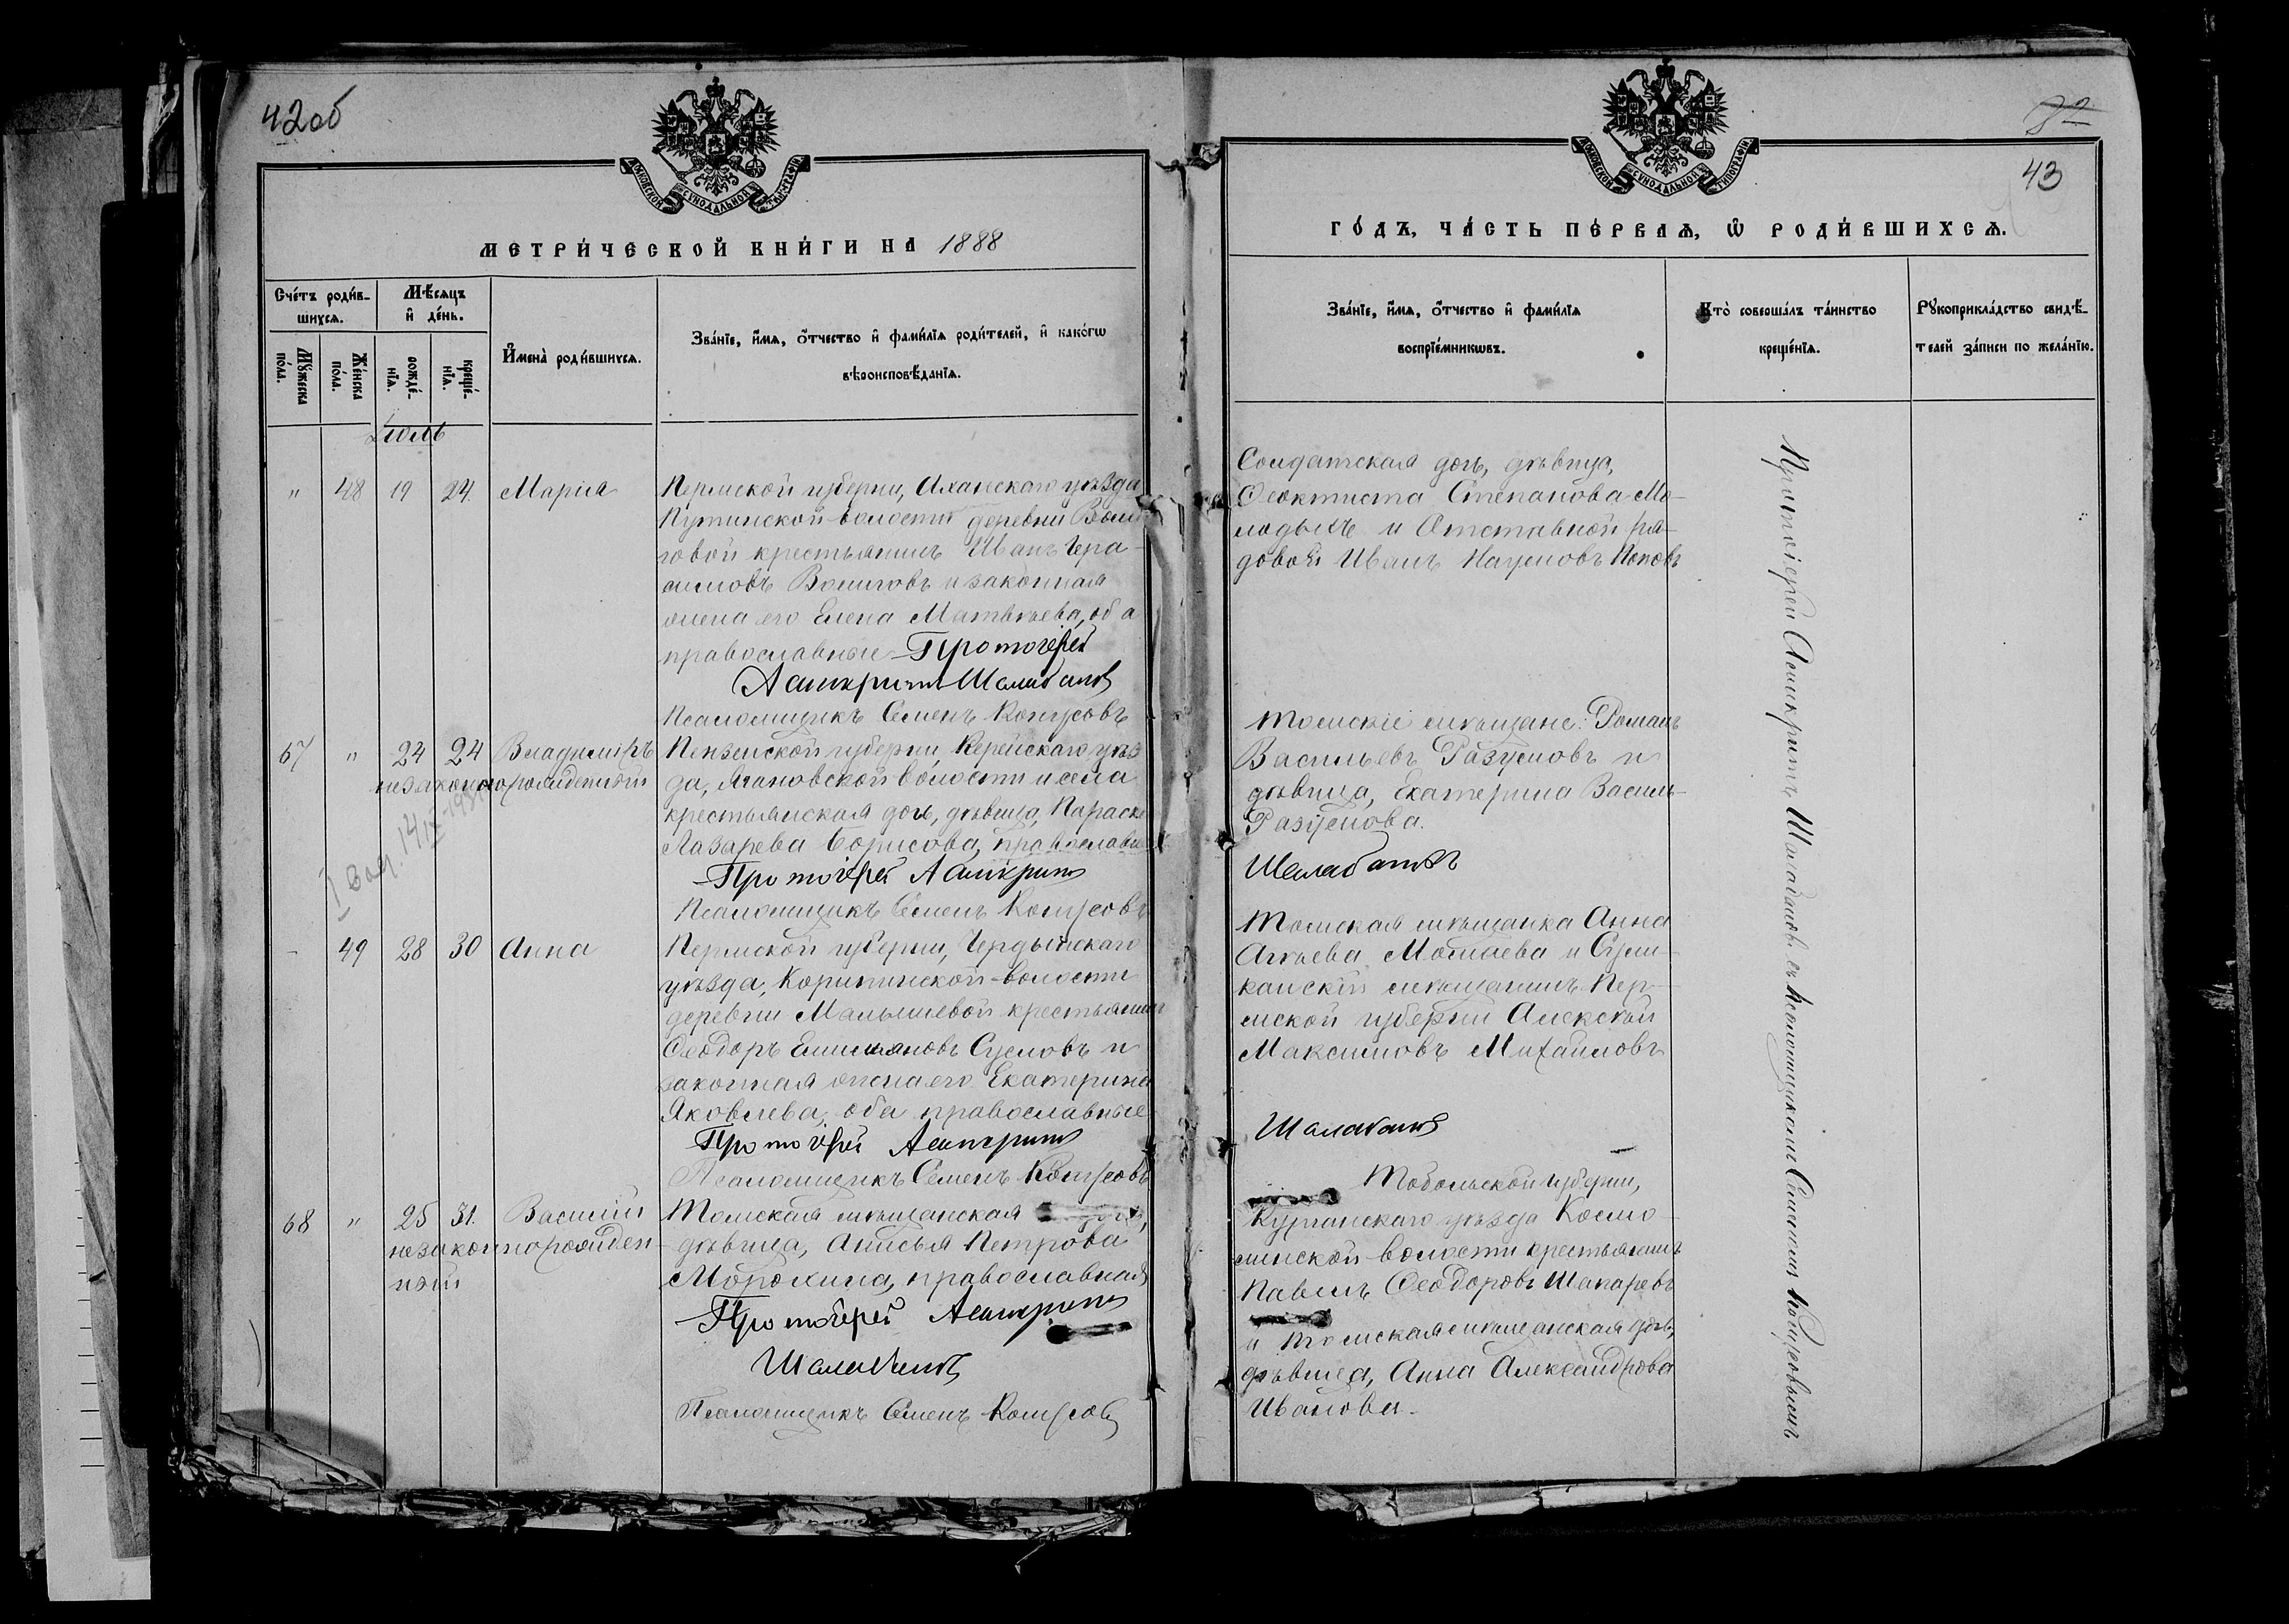 42об
МОСКОВСКОЙ СѴНОДАЛЬНОЙ ТИПОГРАФІИ
МЕТРИ́ЧЕСКОЙ КНИ́ГИ НА 1888
Сче́тъ роди́в-
шихсѧ.
Мѣ́сѧцъ
и҆ де́нь.
Мꙋ́жеска
по́ла.
Же́нска
по́ла.
рожде́-
нїѧ.
креще́-
нїѧ.
И҆мена̀ роди́вшихсѧ.
Зва́нїе, и҆́мѧ, о҆́тчество и҆ фами́лїѧ роди́телей, и҆ како́гѡ
вѣроисповѣ́данїѧ.
Іюль
" 48 19 24. Марія
Пермской губерни, Аханскаго уѣзда
Путинской волости деревни Воли-
говой крестьянинъ Иванъ Гера-
симовъ Волиговъ и законная
жена его Елена Матвѣева, оба
православные Протоіерей
Асинкритъ Шалабановъ
Псаломщикъ Семенъ Конусовъ
67 " 24 24 Владиміръ
незаконнорожденный
Пензенской губерни, Керенскаго уѣз-
да, Агановской волости и села
крестьянская дочь, дѣвица, Параске
Лазарева Борисова, православн
Протоіерей Асинкритъ
Псаломщикъ Семенъ Конусовъ
- 49 28 30 Анна
Пермской губерни, Чердынскаго
уѣзда, Корипинской волости
деревни Малышевой крестьянинъ
Ѳеодоръ Емильяновъ Сусловъ и
законная жена его Екатерина
Яковлева, оба православные
Протоіерей Асинкритъ
Псаломщикъ Семенъ Конусовъ
68 " 25 31. Василій
незаконнорожден-
ный
Томская мѣщанская
дѣвица, Анисья Петрова
Морохина, православная
Протоіерей Асинкритъ
Шалабановъ
Псаломщикъ Семенъ Конусовъ
43
МОСКОВСКОЙ СѴНОДАЛЬНОЙ ТИПОГРАФІИ
ГО́ДЪ, ЧА́СТЬ ПЕ́РВАѦ, Ѽ РОДИ́ВШИХСѦ.
Зва́нїе, и҆́мѧ, о҆́тчество и҆ фами́лїѧ
воспрїе́мникѡвъ.
Кто̀ соверша́лъ та́инство
креще́нїѧ.
Рꙋкоприкла́дство свидѣ́-
телей за́писи по жела́нїю.
Солдатская дочь, дѣвица,
Ѳеоктиста Степанова Мо-
лодыхъ и Отставной ря-
довой Иванъ Наумовъ Поповъ
Томскіе мѣщане: Романъ
Васильевъ Разумовъ и
дѣвица, Екатерина Василь-
Разумова.
Шалабановъ
Томская мѣщанка Анна
Агѣева Мотаева и Сули-
канскій мѣщанинъ Пер-
мской губерни Алексѣй
Максимовъ Михайловъ
Шалабановъ
Тобольской губерни,
Курганскаго уѣзда Космо-
линской волости крестьянинъ
Павелъ Ѳеодоровъ Шапаревъ
и Томская мѣщанская дочь,
дѣвица, Анна Александрова
Иванова.
Протоіерей Асинкритъ Шалабановъ съ Псаломщикомъ Семеномъ Конусовымъ